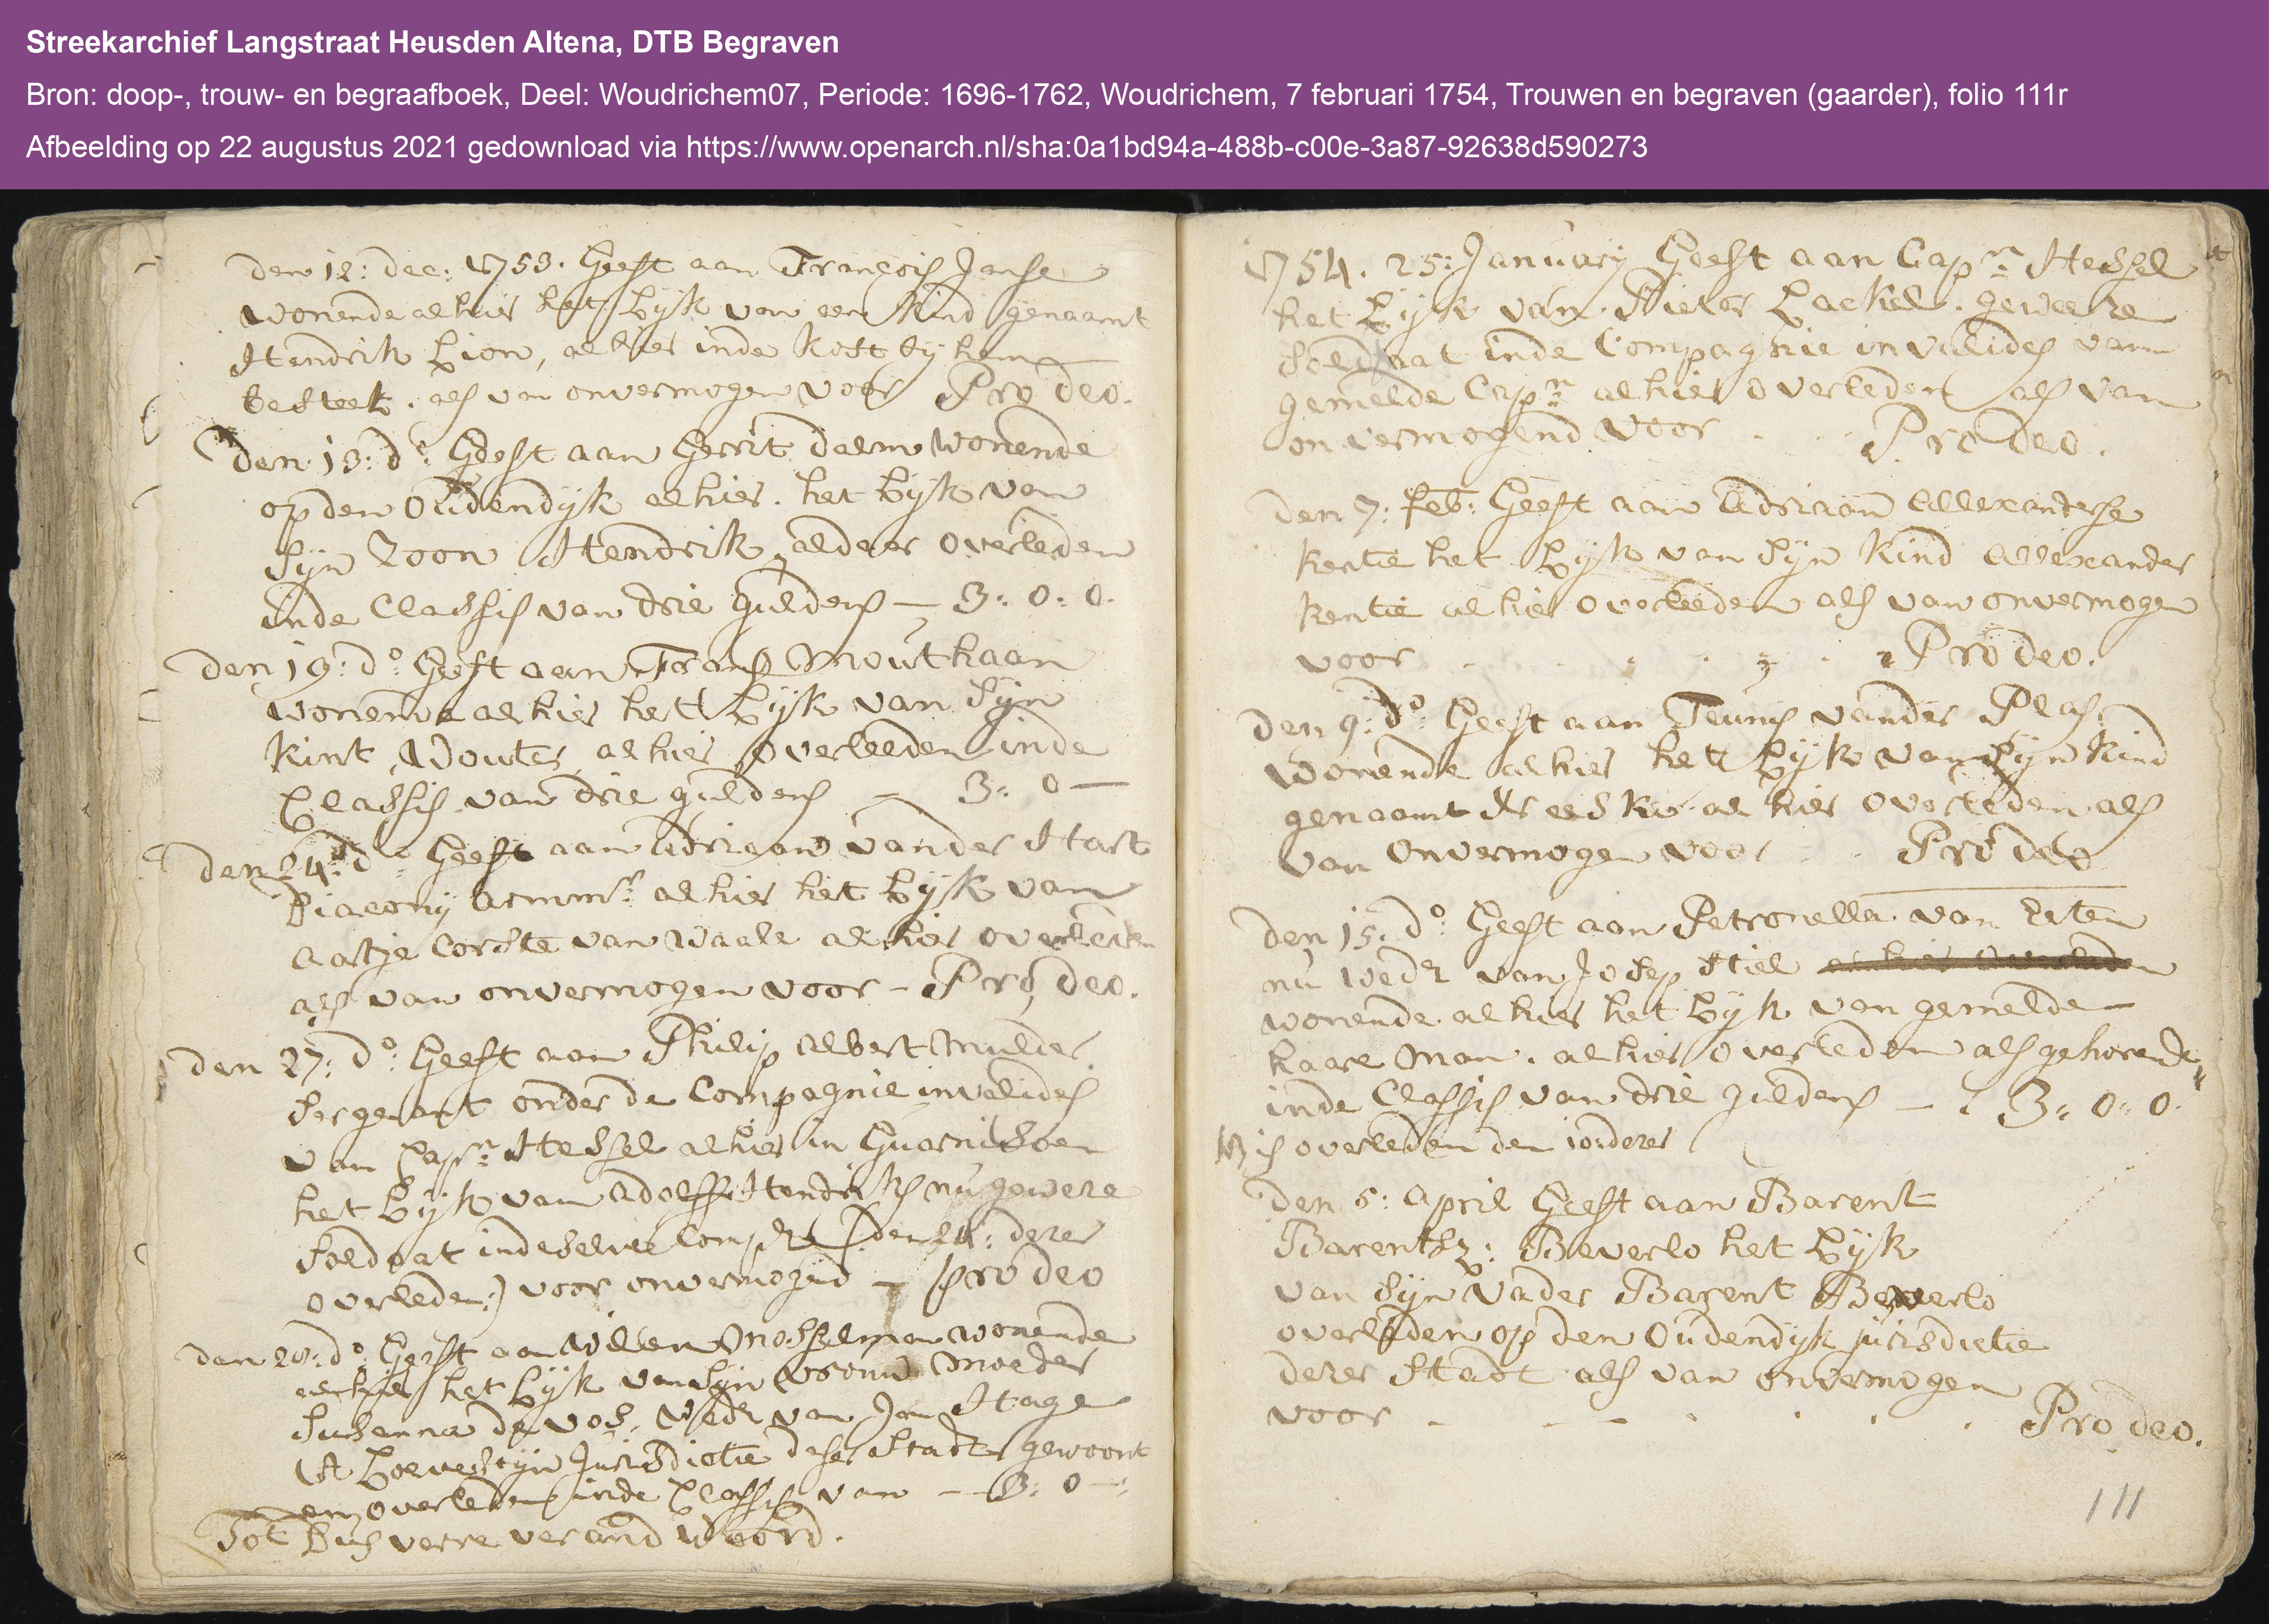 Streekarchief Langstraat Heusden Altena, DTB Begraven
Bron: doop-, trouw- en begraafboek, Deel: Woudrichem07, Periode: 1696-1762, Woudrichem, 7 februari 1754, Trouwen en begraven (gaarder), folio 111r
Afbeelding op 22 augustus 2021 gedownload via https://www.openarch.nl/sha:0a1bd94a-488b-c00e-3a87-92638d590273
den 12: dec: 1753. Geeft aan François Janse
wonende alhier het Lijk van een Kind genaamt
Hendrik Lion, alhier inde Kost by hem
besteet. als van onvermogen voor Pro deo.
den 13: do: Geeft aan Gerrit Dalm wonende
op den Oudendijk alhier. het Lijk van
Sijn Zoon Hendrik, aldaar overleden
inde Classis van drie guldens — 3: 0: 0.
den 19: do: Geeft aan Frans Mouthaan
wonende alhier het Lijk van Sijn
Kint, Wouter, alhier overleeden inde
Classis van drie guldens — 3: 0 —
den 24: do: Geeft aan Adriaan vander Hart
Diacony armmr: alhier het Lijk van
Aartje Corste van Waale alhier overleden
als van onvermogen voor – Pro deo.
den 27: do: Geeft aan Philip Albert Mulder
Sergeant onder de Compagnie invalides
van Capn: Hessel alhier in Guarnisoen
het Lijk van Adolff Hendriks nu gewese
Soldaat indeselve Comp (den 24: deser
overleden:) voor onvermogend — pro deo
den 28: do: Geeft aan Willem Mosselman wonende
alhier het Lijk van Sijn vrouws Moeder
Susanna de Vos, wedr van Jan Hage
Loevesteijn Jurisdictie deser Stadt gewoont
en overleden inde Classis van — 3: 0 —:
Tot Dus verre verandwoord.
1754. 25: January Geeft aan Capn: Hessel
het Lijk van Pieter Lackel. geweese
Soldaat inde Compagnie invalides van
gemelde Capn: alhier overleden als van
onvermogend voor . . . Pro deo.
den 7: feb: Geeft aan Adriaan Allexanderse
Kentie het Lijk van Sijn Kind Allexander
Kentie alhier overleeden als van onvermogen
voor . . . . . . Pro deo.
den 9: do: Geeft aan Teunis vander Plas
wonende alhier het Lijk van Sijn Kind
genaamt alhier overleden als
van onvermogen voor . . Pro deo
den 15: do: Geeft aan Petronella van
nu wedr van Josep Stiel
wonende alhier het Lijk van gemelde
haare Man. alhier overleden als gehorende
inde Classis van drie guldens — . 3: 0: 0.
is overleden den 10: deser
den 5: April Geeft aan Barent
Barentsz: Beverlo het Lijk
van Sijn Vader Barent Beverlo
overleden op den Oudendijk jurisdictie
deser Stadt als van onvermogen
voor – – – . . . . Pro deo.
111